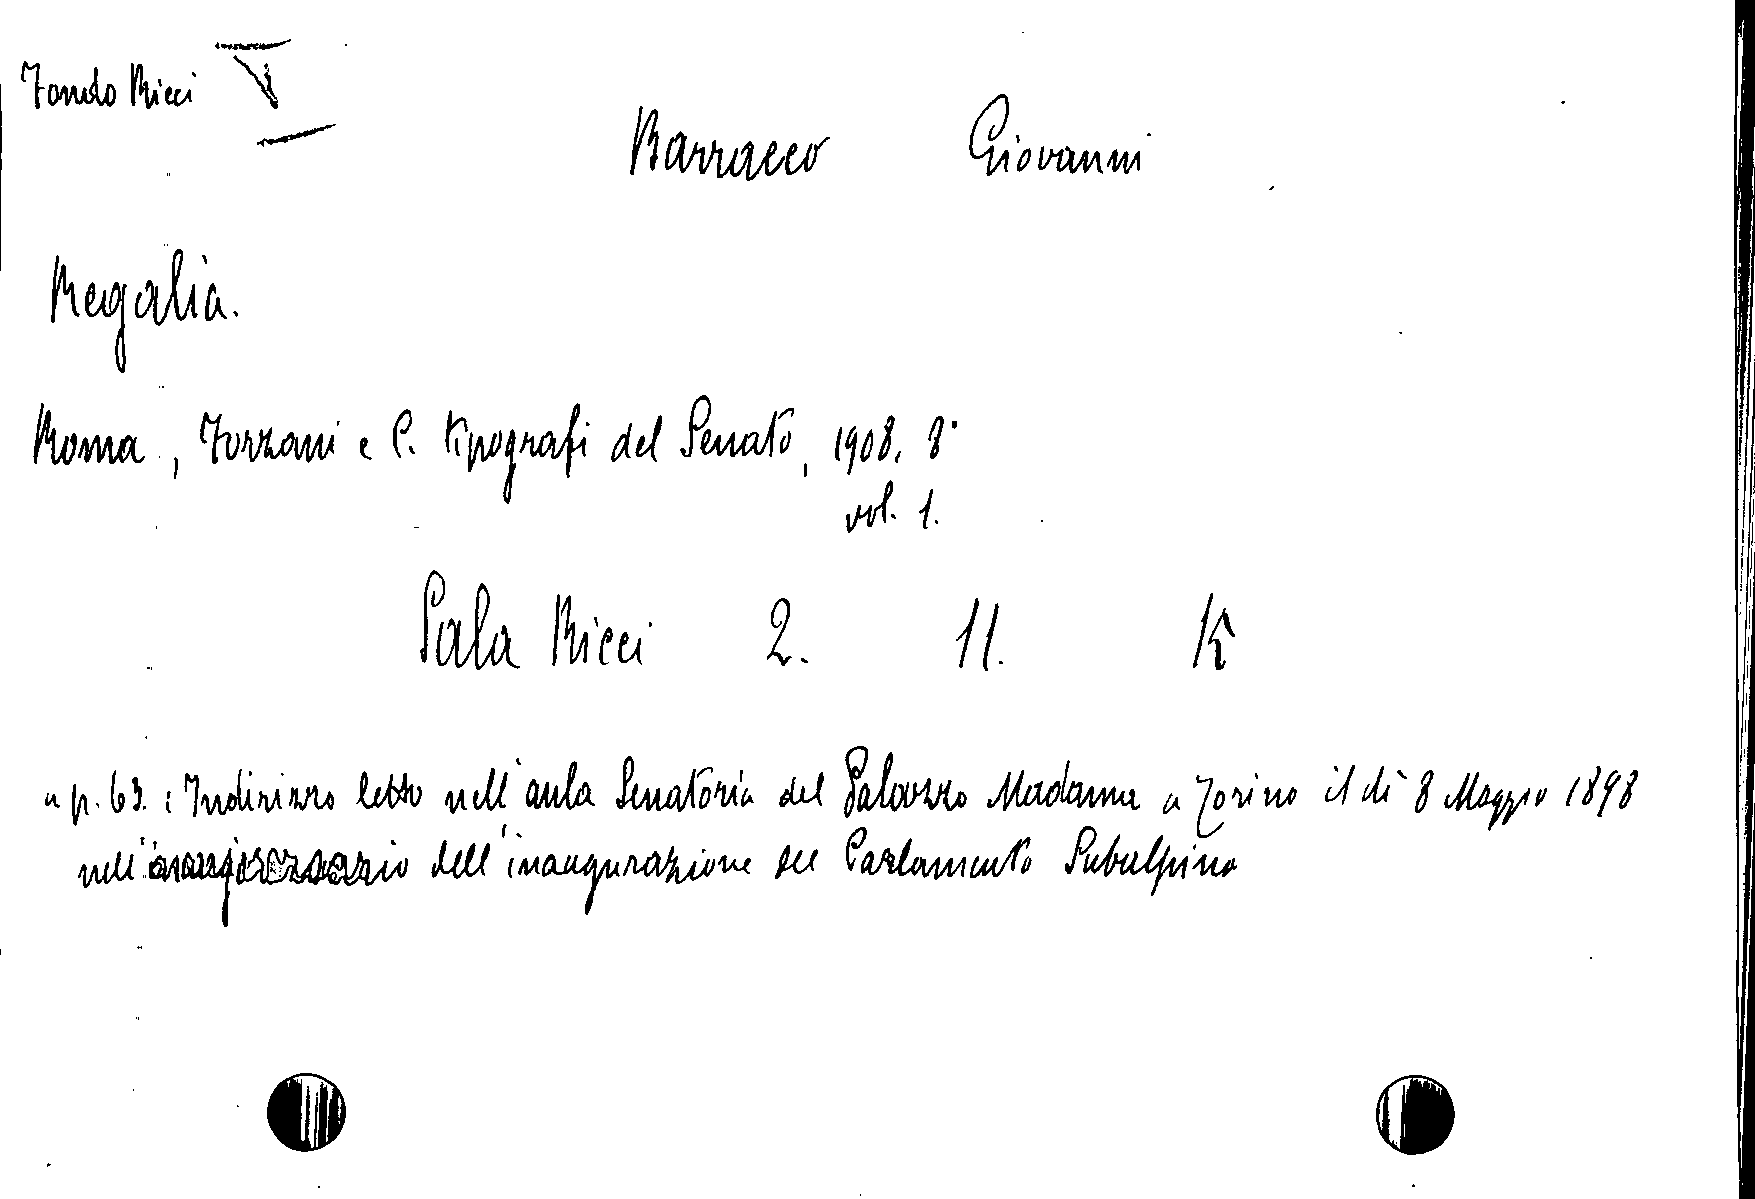 Fondo Ricci V
Barracco Giovanni
Regalia.
Roma, Forzani e C. tipografi del Senato, 1908. 8°
vol. 1.
Sala Ricci 2. 11. K
a p. 63. : Indirizzo letto nell'aula Senatoria del Palazzo Madama a Torino il dì 8 Maggio 1898
nell' dell'inaugurazione del Parlamento Subalpino